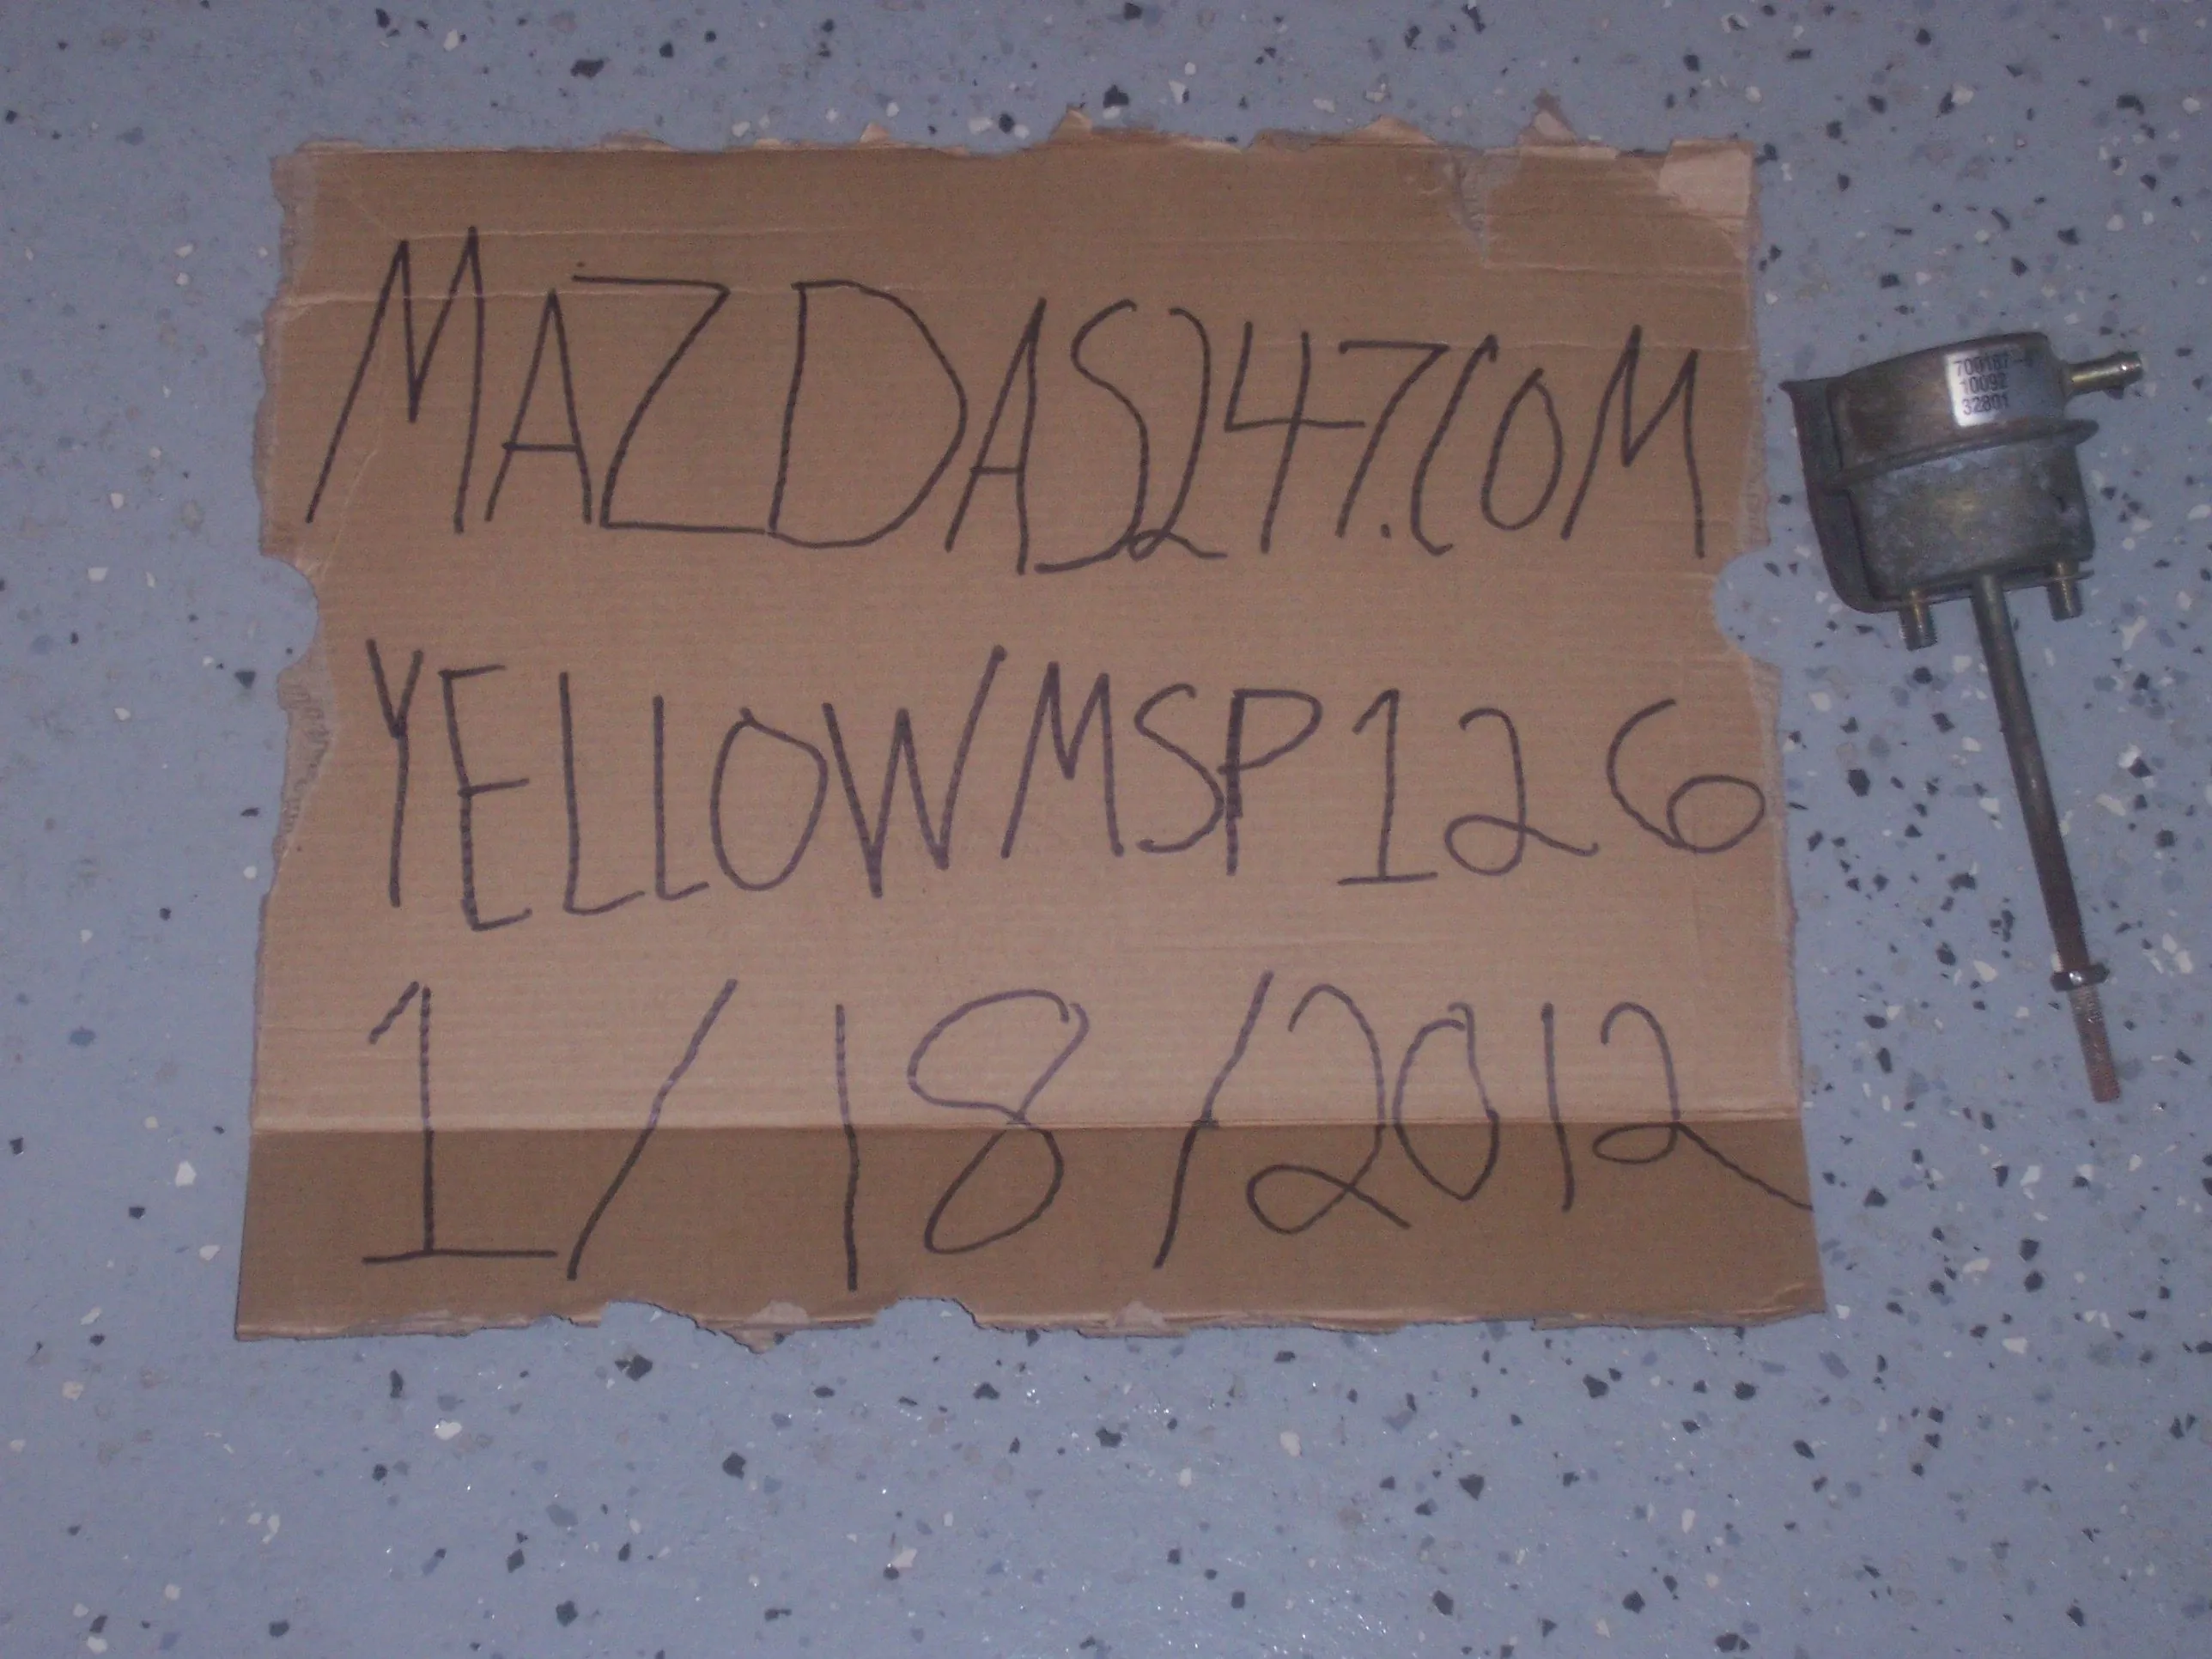 MAZDAS247.COM
YELLOWMSP126
1/18/2012
10092
32801